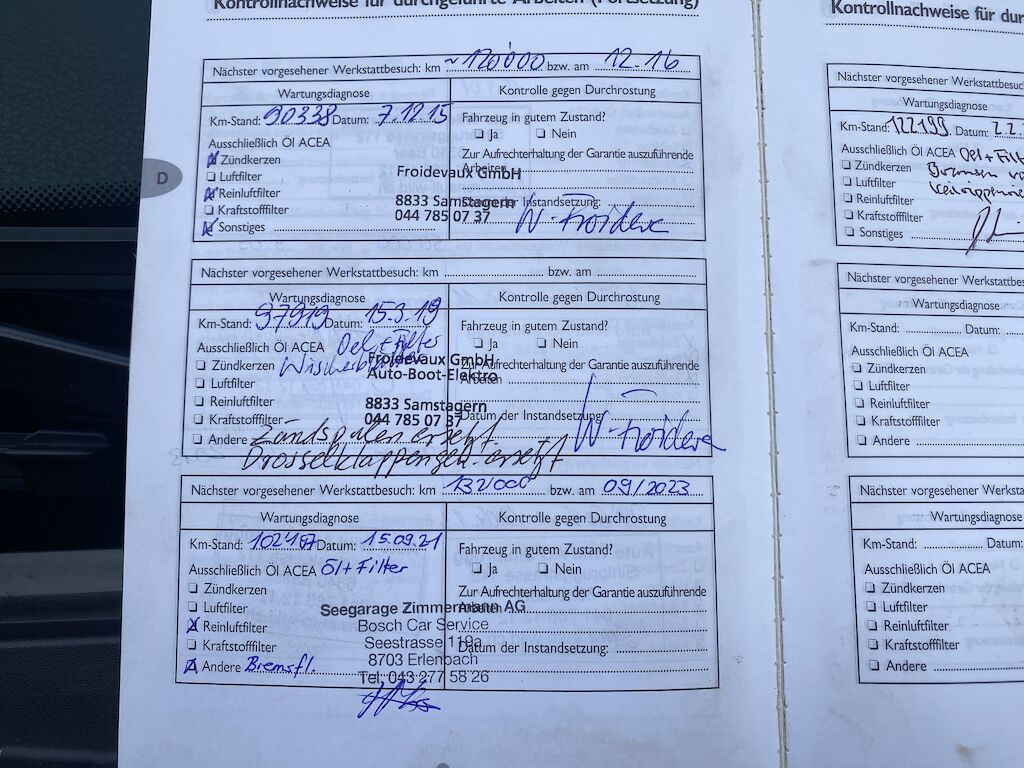 Kontrollnachweise für durchgeführte Arbeiten (Fortsetzung)
Nächster vorgesehener Werkstattbesuch: km ~120'000 bzw. am 12.16
Wartungsdiagnose
Kontrolle gegen Durchrostung
Km-Stand: 90338 Datum: 7.12.15
Fahrzeug in gutem Zustand?
Ausschließlich Öl ACEA
Ja Nein
Zündkerzen
Zur Aufrechterhaltung der Garantie auszuführende
Arbeiten
Luftfilter
Froidevaux GmbH
Reinluftfilter
8833 Samstagern
Datum der Instandsetzung:
Kraftstofffilter
044 785 07 37
Sonstiges
D
Nächster vorgesehener Werkstattbesuch: km bzw. am
Wartungsdiagnose
Kontrolle gegen Durchrostung
Km-Stand: 97919 Datum: 15.3.19
Fahrzeug in gutem Zustand?
Ausschließlich Öl ACEA Oel + Filter
Ja Nein
Zündkerzen
Froidevaux GmbH
Zur Aufrechterhaltung der Garantie auszuführende
Arbeiten
Luftfilter
Auto-Boot-Elektro
Reinluftfilter
8833 Samstagern
Datum der Instandsetzung:
Kraftstofffilter
044 785 07 37
Andere Zündspulen ersetzt.
Drosselklappengeh. ersetzt
Nächster vorgesehener Werkstattbesuch: km 132'000 bzw. am 09/2023
Wartungsdiagnose
Kontrolle gegen Durchrostung
Km-Stand: 102407 Datum: 15.09.21
Fahrzeug in gutem Zustand?
Ausschließlich Öl ACEA Öl + Filter
Ja Nein
Zündkerzen
Zur Aufrechterhaltung der Garantie auszuführende
Arbeiten
Luftfilter
Seegarage Zimmermann AG
Reinluftfilter
Bosch Car Service
Kraftstofffilter
Seestrasse 119a
Datum der Instandsetzung:
Andere Bremsfl.
8703 Erlenbach
Tel. 043 277 58 26
Kontrollnachweise für dur
Nächster vorgesehener Werkstattbesuc
Wartungsdiagnose
Km-Stand: 122199 Datum: 2.2.
Ausschließlich Öl ACEA Oel + Filt
Zündkerzen
Luftfilter
Reinluftfilter
Kraftstofffilter
Sonstiges
Nächster vorgesehener Werkstattb
Wartungsdiagnose
Km-Stand: Datum:
Ausschließlich Öl ACEA
Zündkerzen
Luftfilter
Reinluftfilter
Kraftstofffilter
Andere
Nächster vorgesehener Werksta
Wartungsdiagnose
Km-Stand: Datum:
Ausschließlich Öl ACEA
Zündkerzen
Luftfilter
Reinluftfilter
Kraftstofffilter
Andere